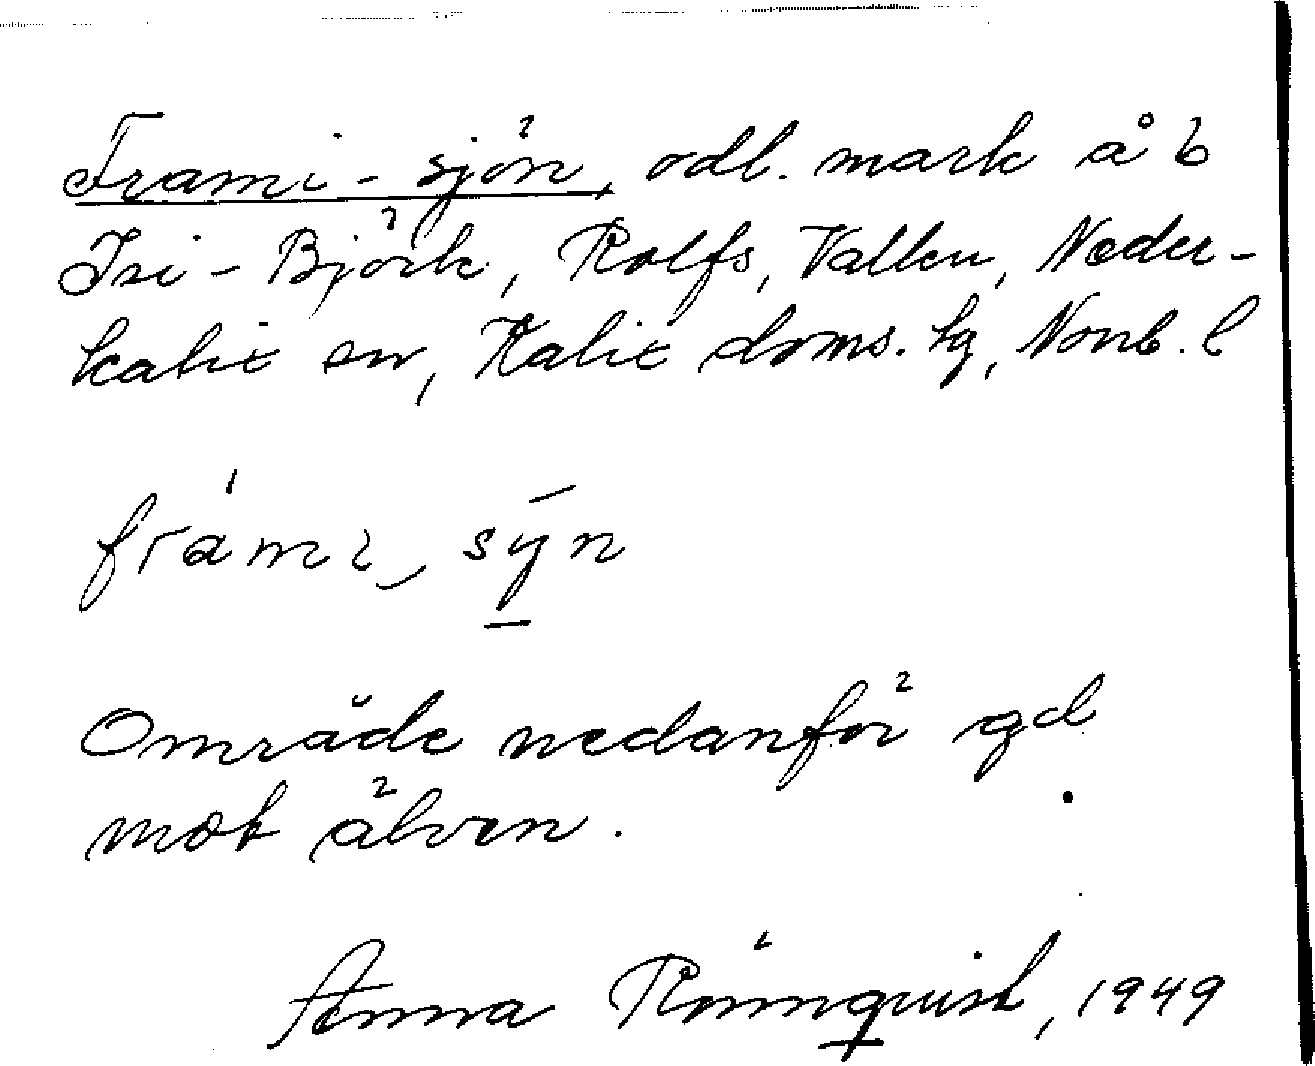 Frami-sjön, odl. mark å b
Isi-Björk, Rolfs, Vallen, Neder-
kalix sn, Kalix doms. hg, Norrb. l
frámi sýn
Område nedanför gd
mot älven.
Anna Rönnquist, 1949